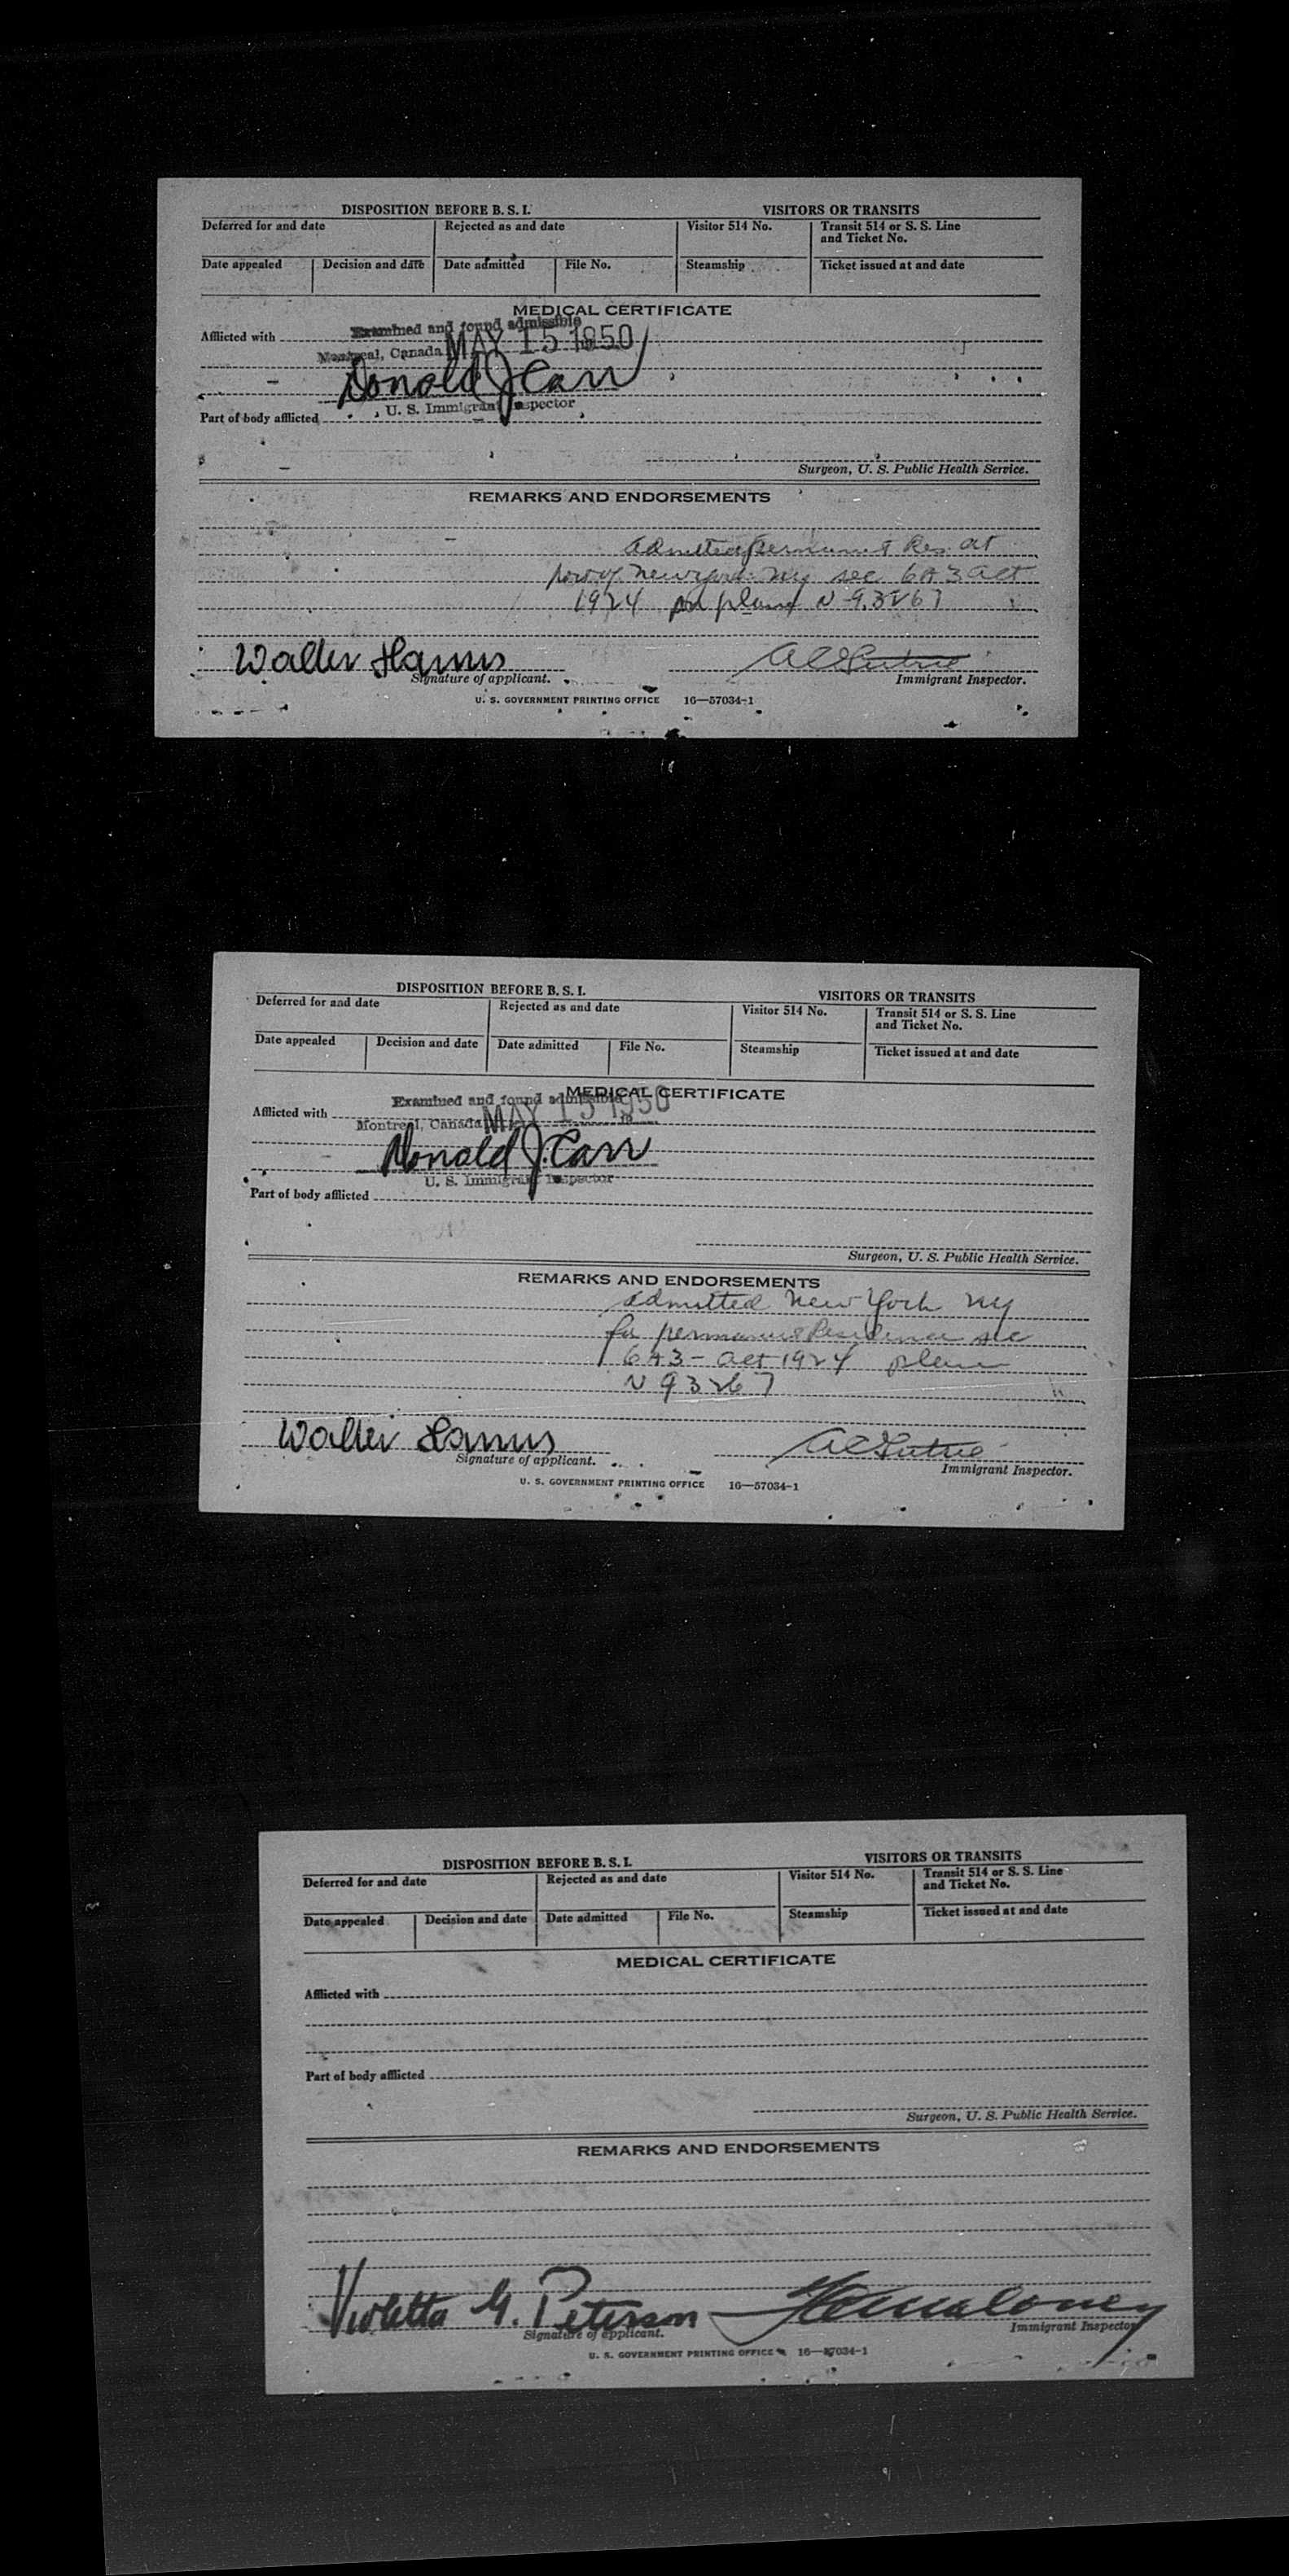 DISPOSITION BEFORE B. S. I. VISITORS OR TRANSITS
Deferred for and date Rejected as and date Visitor 514 No. Transit 514 or S. S. Line
and Ticket No.
Date appealed Decision and date Date admitted File No. Steamship Ticket issued at and date
MEDICAL CERTIFICATE
Examined and found admissible
Afflicted with
Montreal, Canada MAY 15 1950
Donald J. Carr
U. S. Immigrant Inspector
Part of body afflicted
Surgeon, U. S. Public Health Service.
REMARKS AND ENDORSEMENTS
admitted permanent Res. at
port of New York NY sec 6A3 act
1924 on plane N 93267
Walter Hanus
Signature of applicant. Immigrant Inspector.
U. S. GOVERNMENT PRINTING OFFICE 16—57034-1
DISPOSITION BEFORE B. S. I. VISITORS OR TRANSITS
Deferred for and date Rejected as and date Visitor 514 No. Transit 514 or S. S. Line
and Ticket No.
Date appealed Decision and date Date admitted File No. Steamship Ticket issued at and date
MEDICAL CERTIFICATE
Examined and found admissible
Afflicted with
Montreal, Canada MAY 15 1950
Donald J. Carr
U. S. Immigrant Inspector
Part of body afflicted
Surgeon, U. S. Public Health Service.
REMARKS AND ENDORSEMENTS
admitted New York NY
for permanent Residence sec
6A3 - act 1924 plane
N 93267
Walter Hanus
Signature of applicant. Immigrant Inspector.
U. S. GOVERNMENT PRINTING OFFICE 16—57034-1
DISPOSITION BEFORE B. S. I. VISITORS OR TRANSITS
Deferred for and date Rejected as and date Visitor 514 No. Transit 514 or S. S. Line
and Ticket No.
Date appealed Decision and date Date admitted File No. Steamship Ticket issued at and date
MEDICAL CERTIFICATE
Afflicted with
Part of body afflicted
Surgeon, U. S. Public Health Service.
REMARKS AND ENDORSEMENTS
Violetta G. Peterson
Signature of applicant. Immigrant Inspector
U. S. GOVERNMENT PRINTING OFFICE 16—57034-1